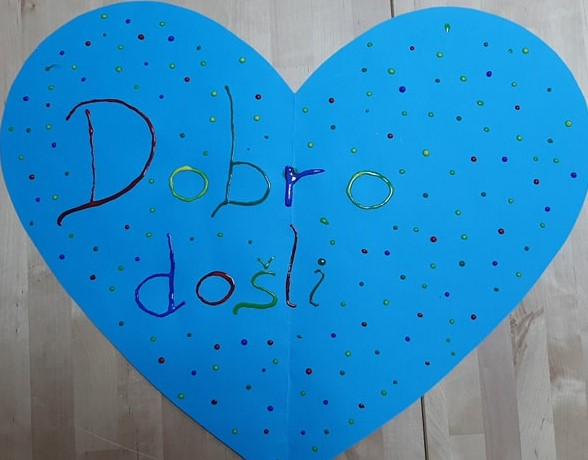 Dobro
došli